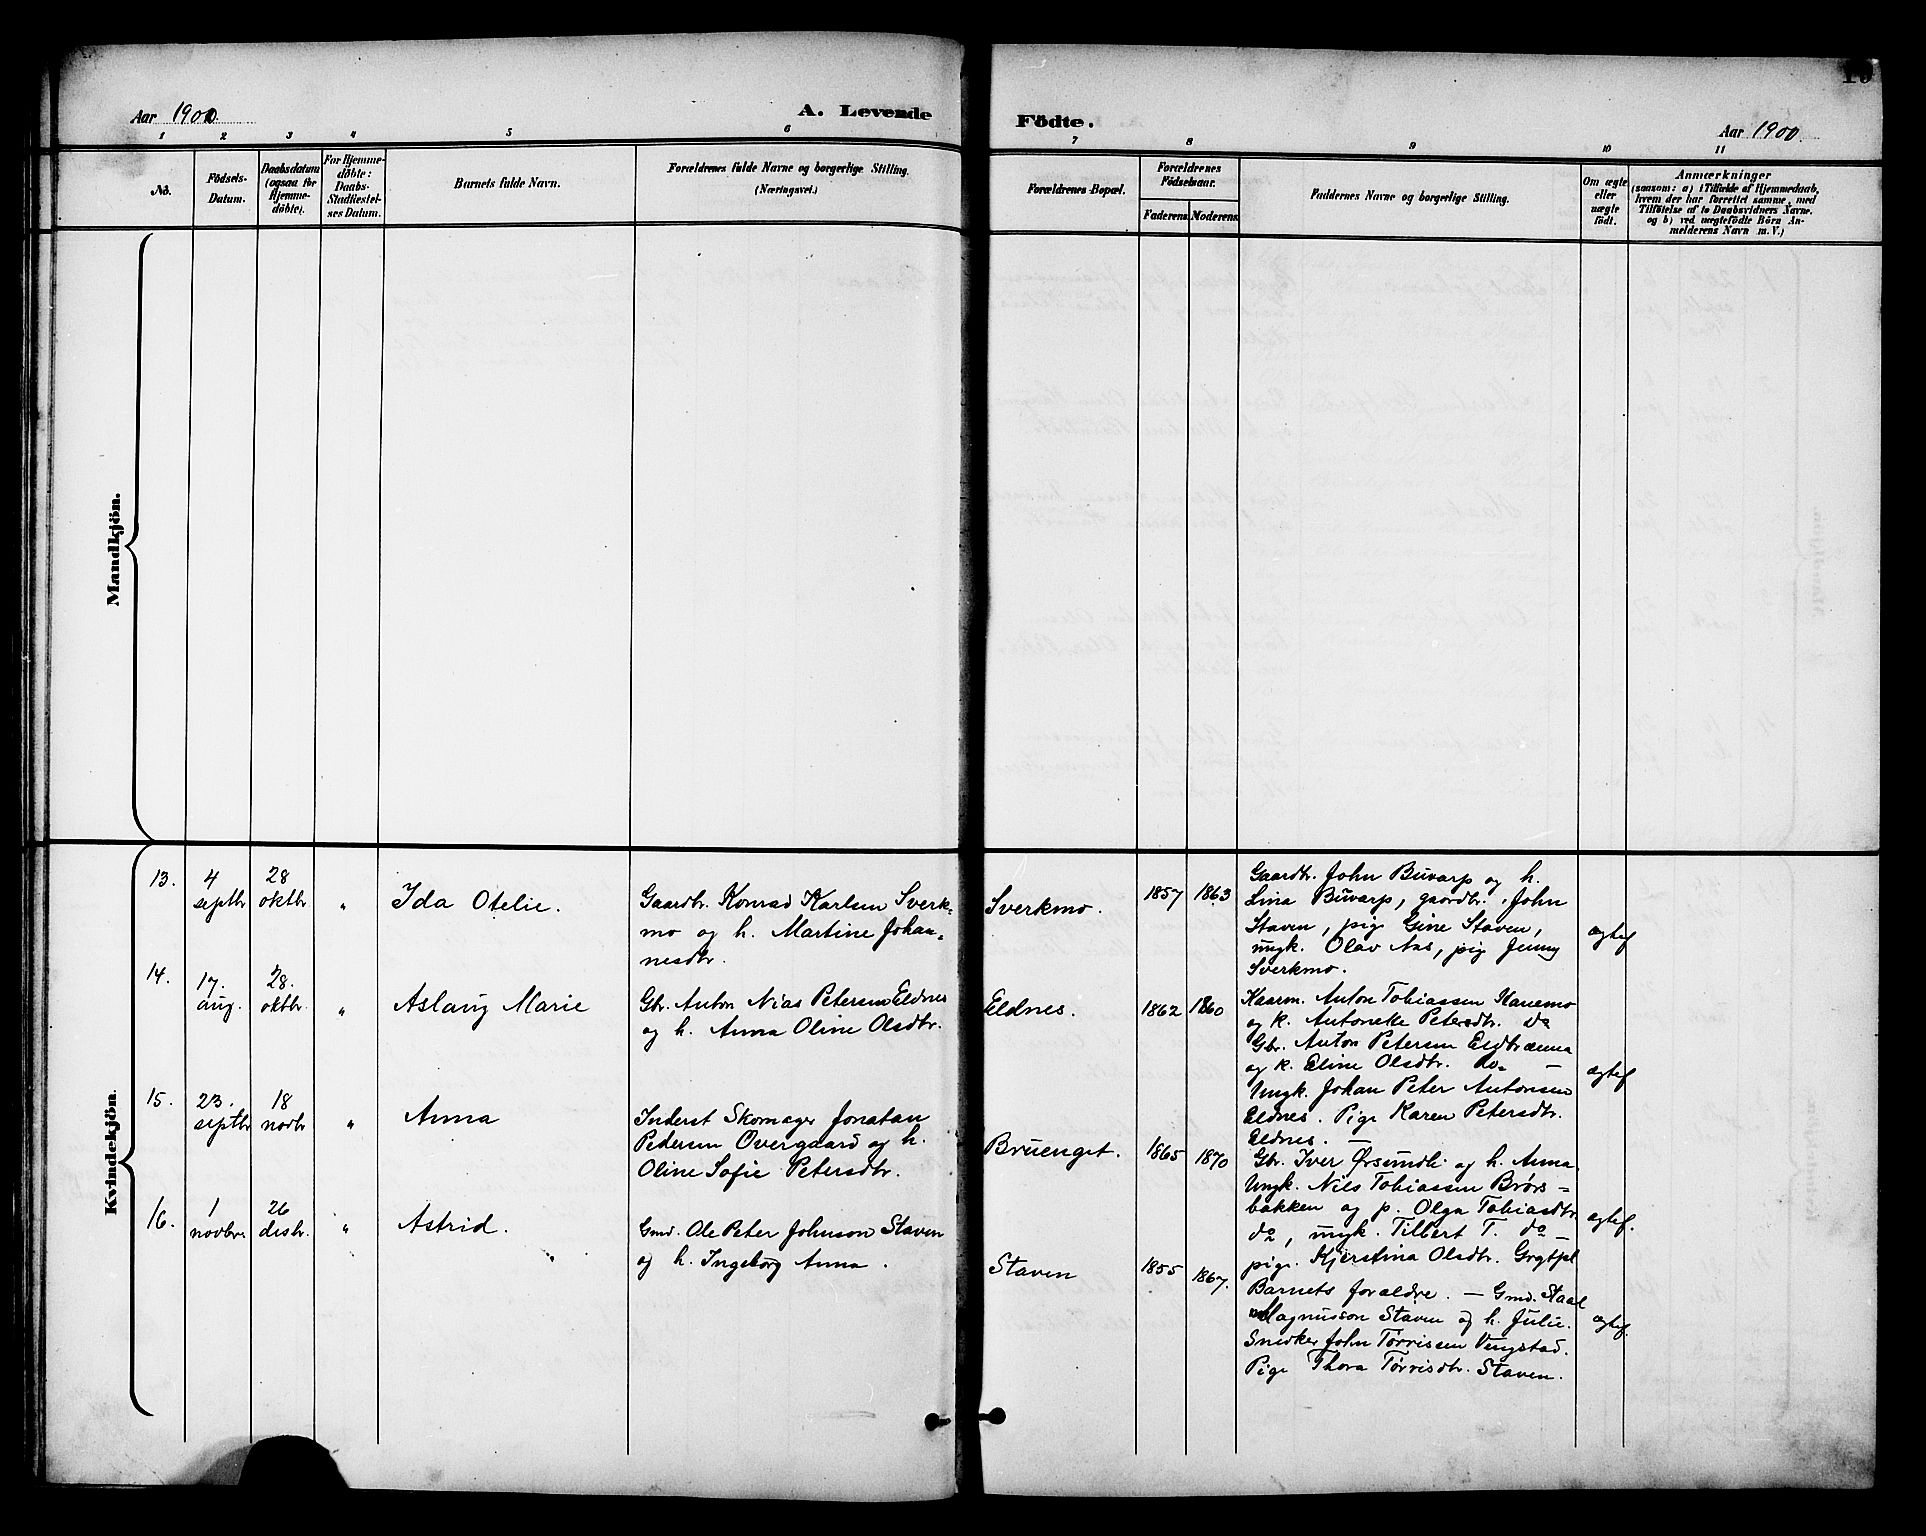 10
Aar 1900.
A. Levende
Födte.
Aar 1900.
1 2 3 4 5 6 7 8 9 10 11
No.
Födsels-
Datum.
Daabsdatum
(ogsaa for
Hjemme-
döbte).
For Hjemme-
döbte:
Daabs-
Stadfæstel-
ses Datum.
Barnets fulde Navn.
Forældrenes fulde Navne og borgerlige Stilling.
(Næringsvei.)
Forældrenes Bopæl.
Forældrenes
Födselsaar.
Faderens. Moderens.
Faddernes Navne og borgerlige Stilling.
Om ægte
eller
uægte
födt.
Anmærkninger
(saasom: a) i Tilfælde af Hjemmedaab,
hvem der har forrettet samme, med
Tilföielse af to Daabsvidners Navne.
og b) ved uægtefödte Börn An-
melderens Navn m. V.)
Mandkjön.
Kvindekjön.
13.
4
septbr
28
oktbr
"
Ida Otelie.
Gaardbr. Konrad Karlsen Sverk=
mo og h. Martine Johan=
nesdtr.
Sverkmo.
1857
1863
Gaardbr. John Buvarp og h.
Lina Buvarp, gaardbr. John
Staven, pige Gine Staven,
ungk. Olav Aas, pig Jenny
Sverkmo.
ægtef
14.
17.
aug.
28.
oktbr.
"
Aslaug Marie
Gbr. Anton Nias Petersen Eldnes
og h. Anna Oline Olsdtr.
Eldnes.
1862
1860
Kaarm. Anton Tobiassen Hanemo
og k. Antonette Petersdtr. do
Gbr. Anton Petersen
og k. Eline Olsdtr. do. —
Ungk. Johan Peter Antonsen
Eldnes. Pige Karen Petersdtr.
Eldnes. —
ægtef
15.
23.
septbr
18
novbr
"
Anna
Inderst Skomager Jonatan
Pedersen Overgaard og h.
Oline Sofie Petersdtr.
Bruenget.
1865
1870
Gbr. Iver Ørsundli og h. Anna
Ungk. Nils Tobiassen Brørs=
bakken og p. Olga Tobiasdtr.
do, ungk. Tilbert T. do —
pige. Kjerstina Olsdtr.
ægtef.
16.
1
novbr.
26
desbr.
"
Astrid.
Gmd. Ole Peter Johnson Staven
og h. Ingeborg Anna.
Staven
1855
1867.
Barnets forældre. — Gmd.
Magnusson Staven og h. Julie.
Snedker John Tørrissen Vengstad.
Pige Thora Tørrisdtr. Staven.
ægtef.